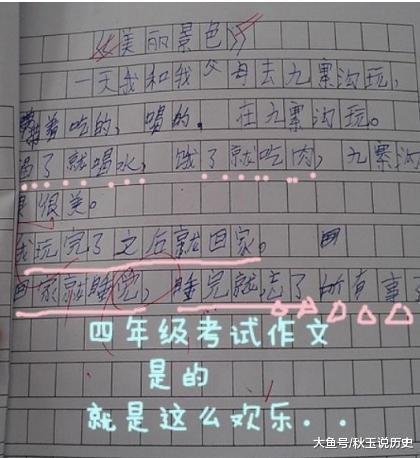 《美丽景色》
一天我和我父母去九寨沟玩,
着吃的,喝的,在九寨沟玩。
渴了就喝水,饿了就吃肉,九寨沟
很美。
我玩完了之后就回家。
回家就睡觉,睡完就忘了所有事
四年级考试作文
是的
就是这么欢乐...
大鱼号/秋玉说历史